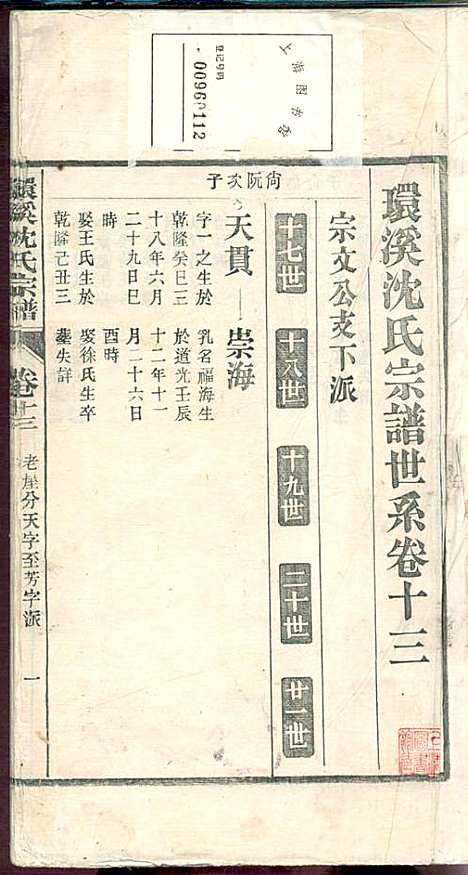 上海图书馆
登记号码
00960112
環溪沈氏宗譜世系卷十三
宗文公支下派
十七世 十八世 十九世 二十世 廿一世
尙阮次子
天貫—崇海
字一之生於
乾隆癸巳三
十八年六月
二十九日巳
時
娶王氏生於
乾隆己丑三
乳名福海生
於道光壬辰
十二年十一
月二十六日
酉時
娶徐氏生卒
塟失詳
環溪沈氏宗譜
卷十三
老崖分天字至芳字派
一